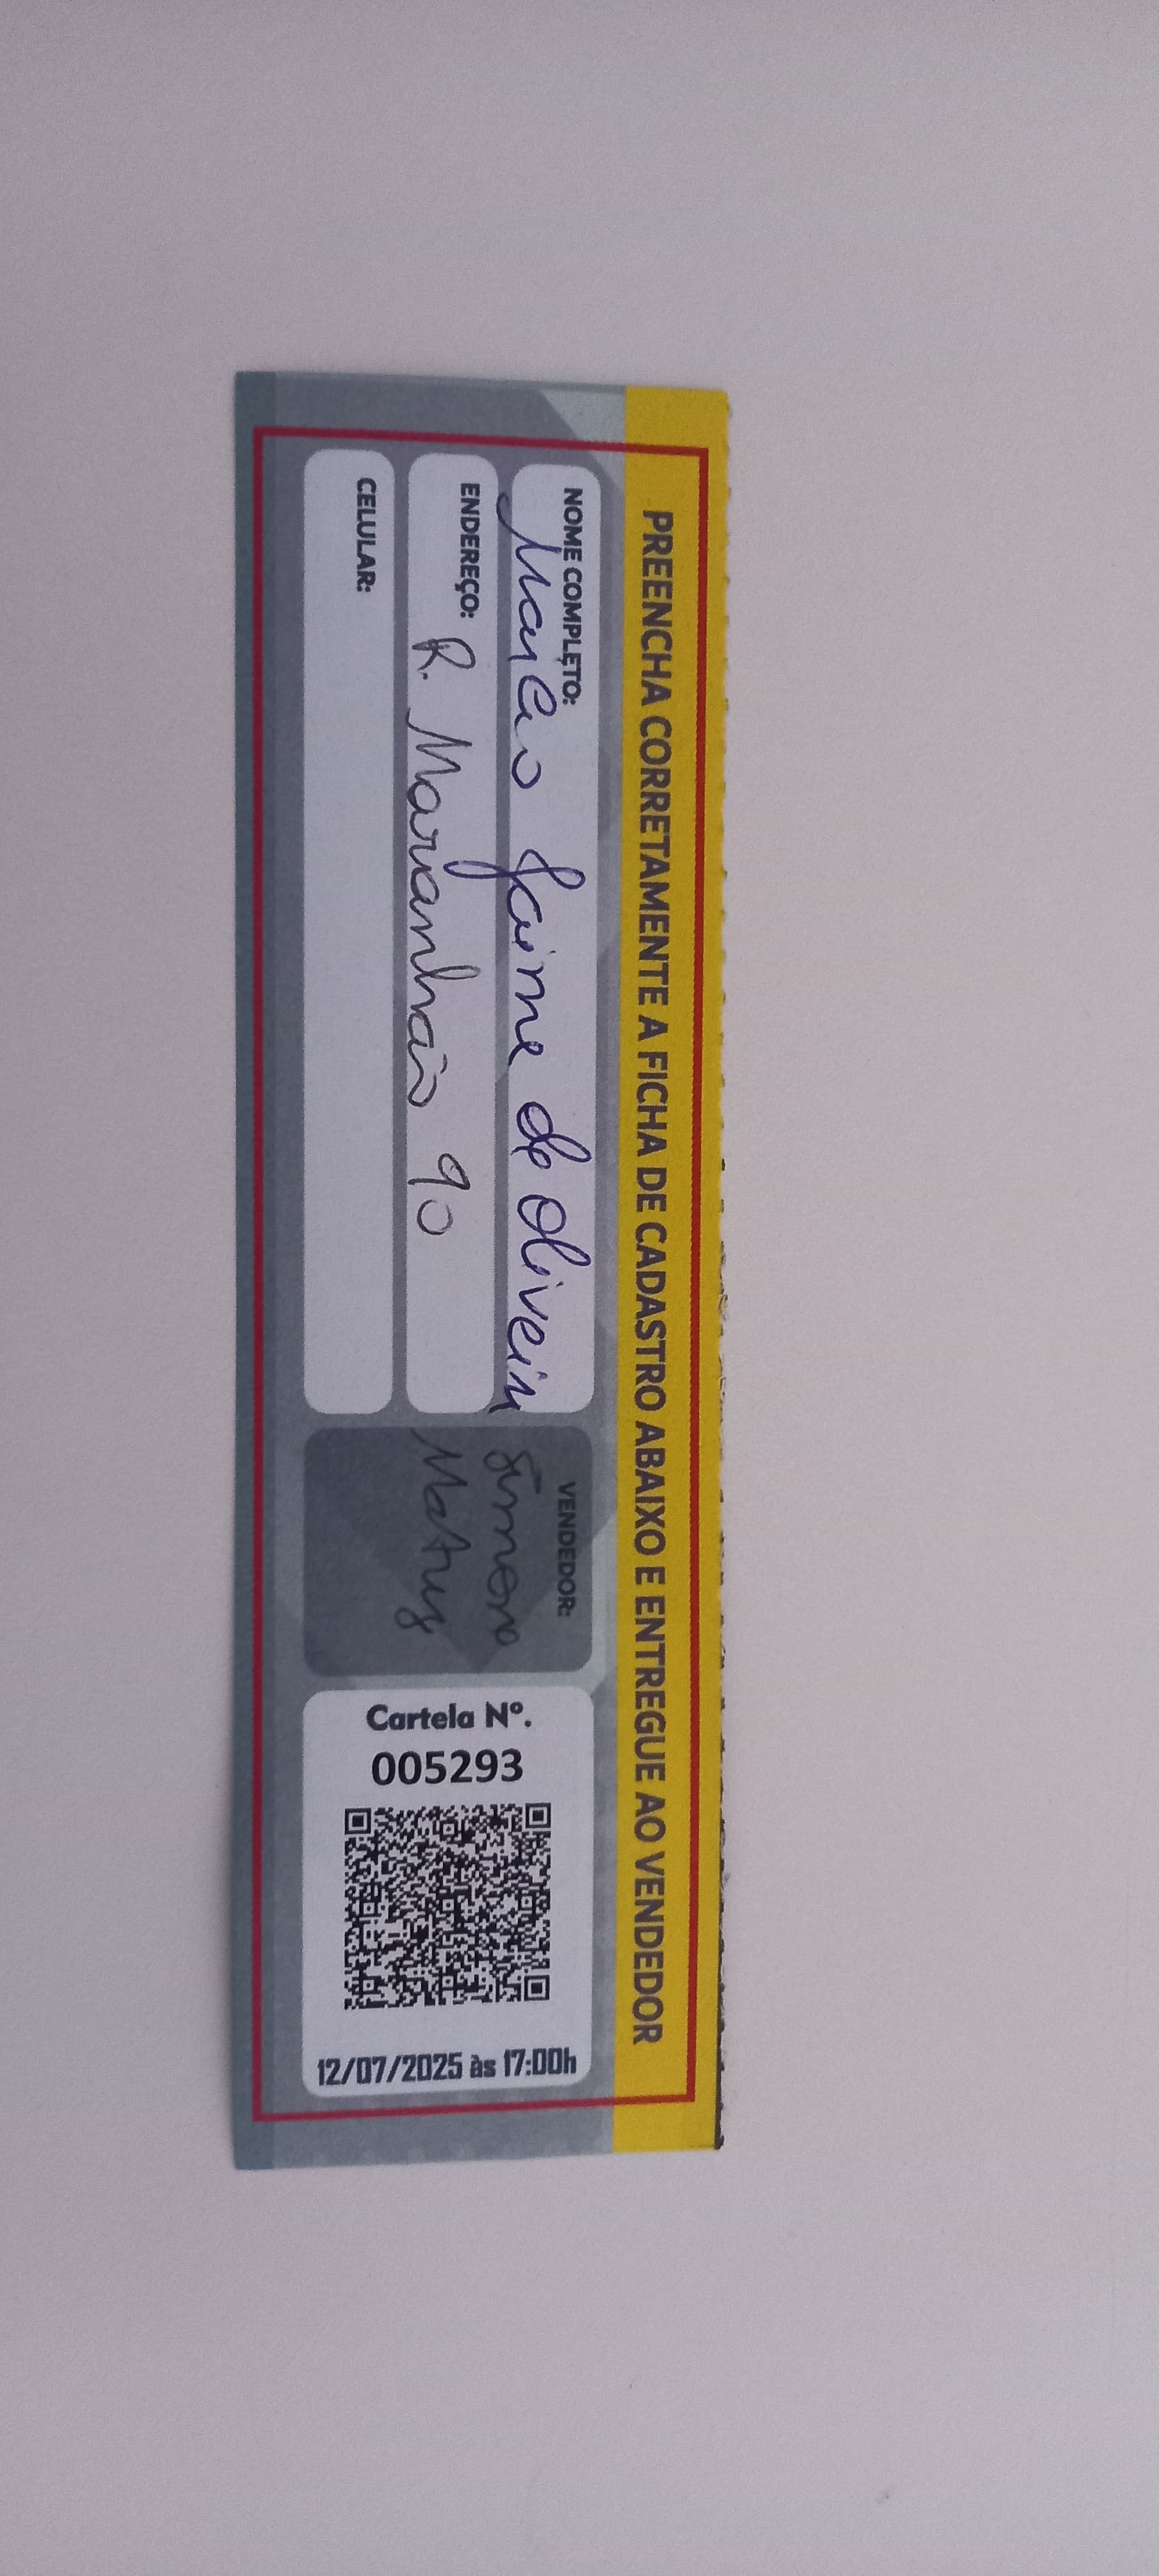 PREENCHA CORRETAMENTE A FICHA DE CADASTRO ABAIXO E ENTREGUE AO VENDEDOR
NOME COMPLETO:
Jaime de Oliveira
ENDEREÇO:
R. Maranhão 90
CELULAR:
VENDEDOR:
Cartela Nº.
005293
12/07/2025 às 17:00h